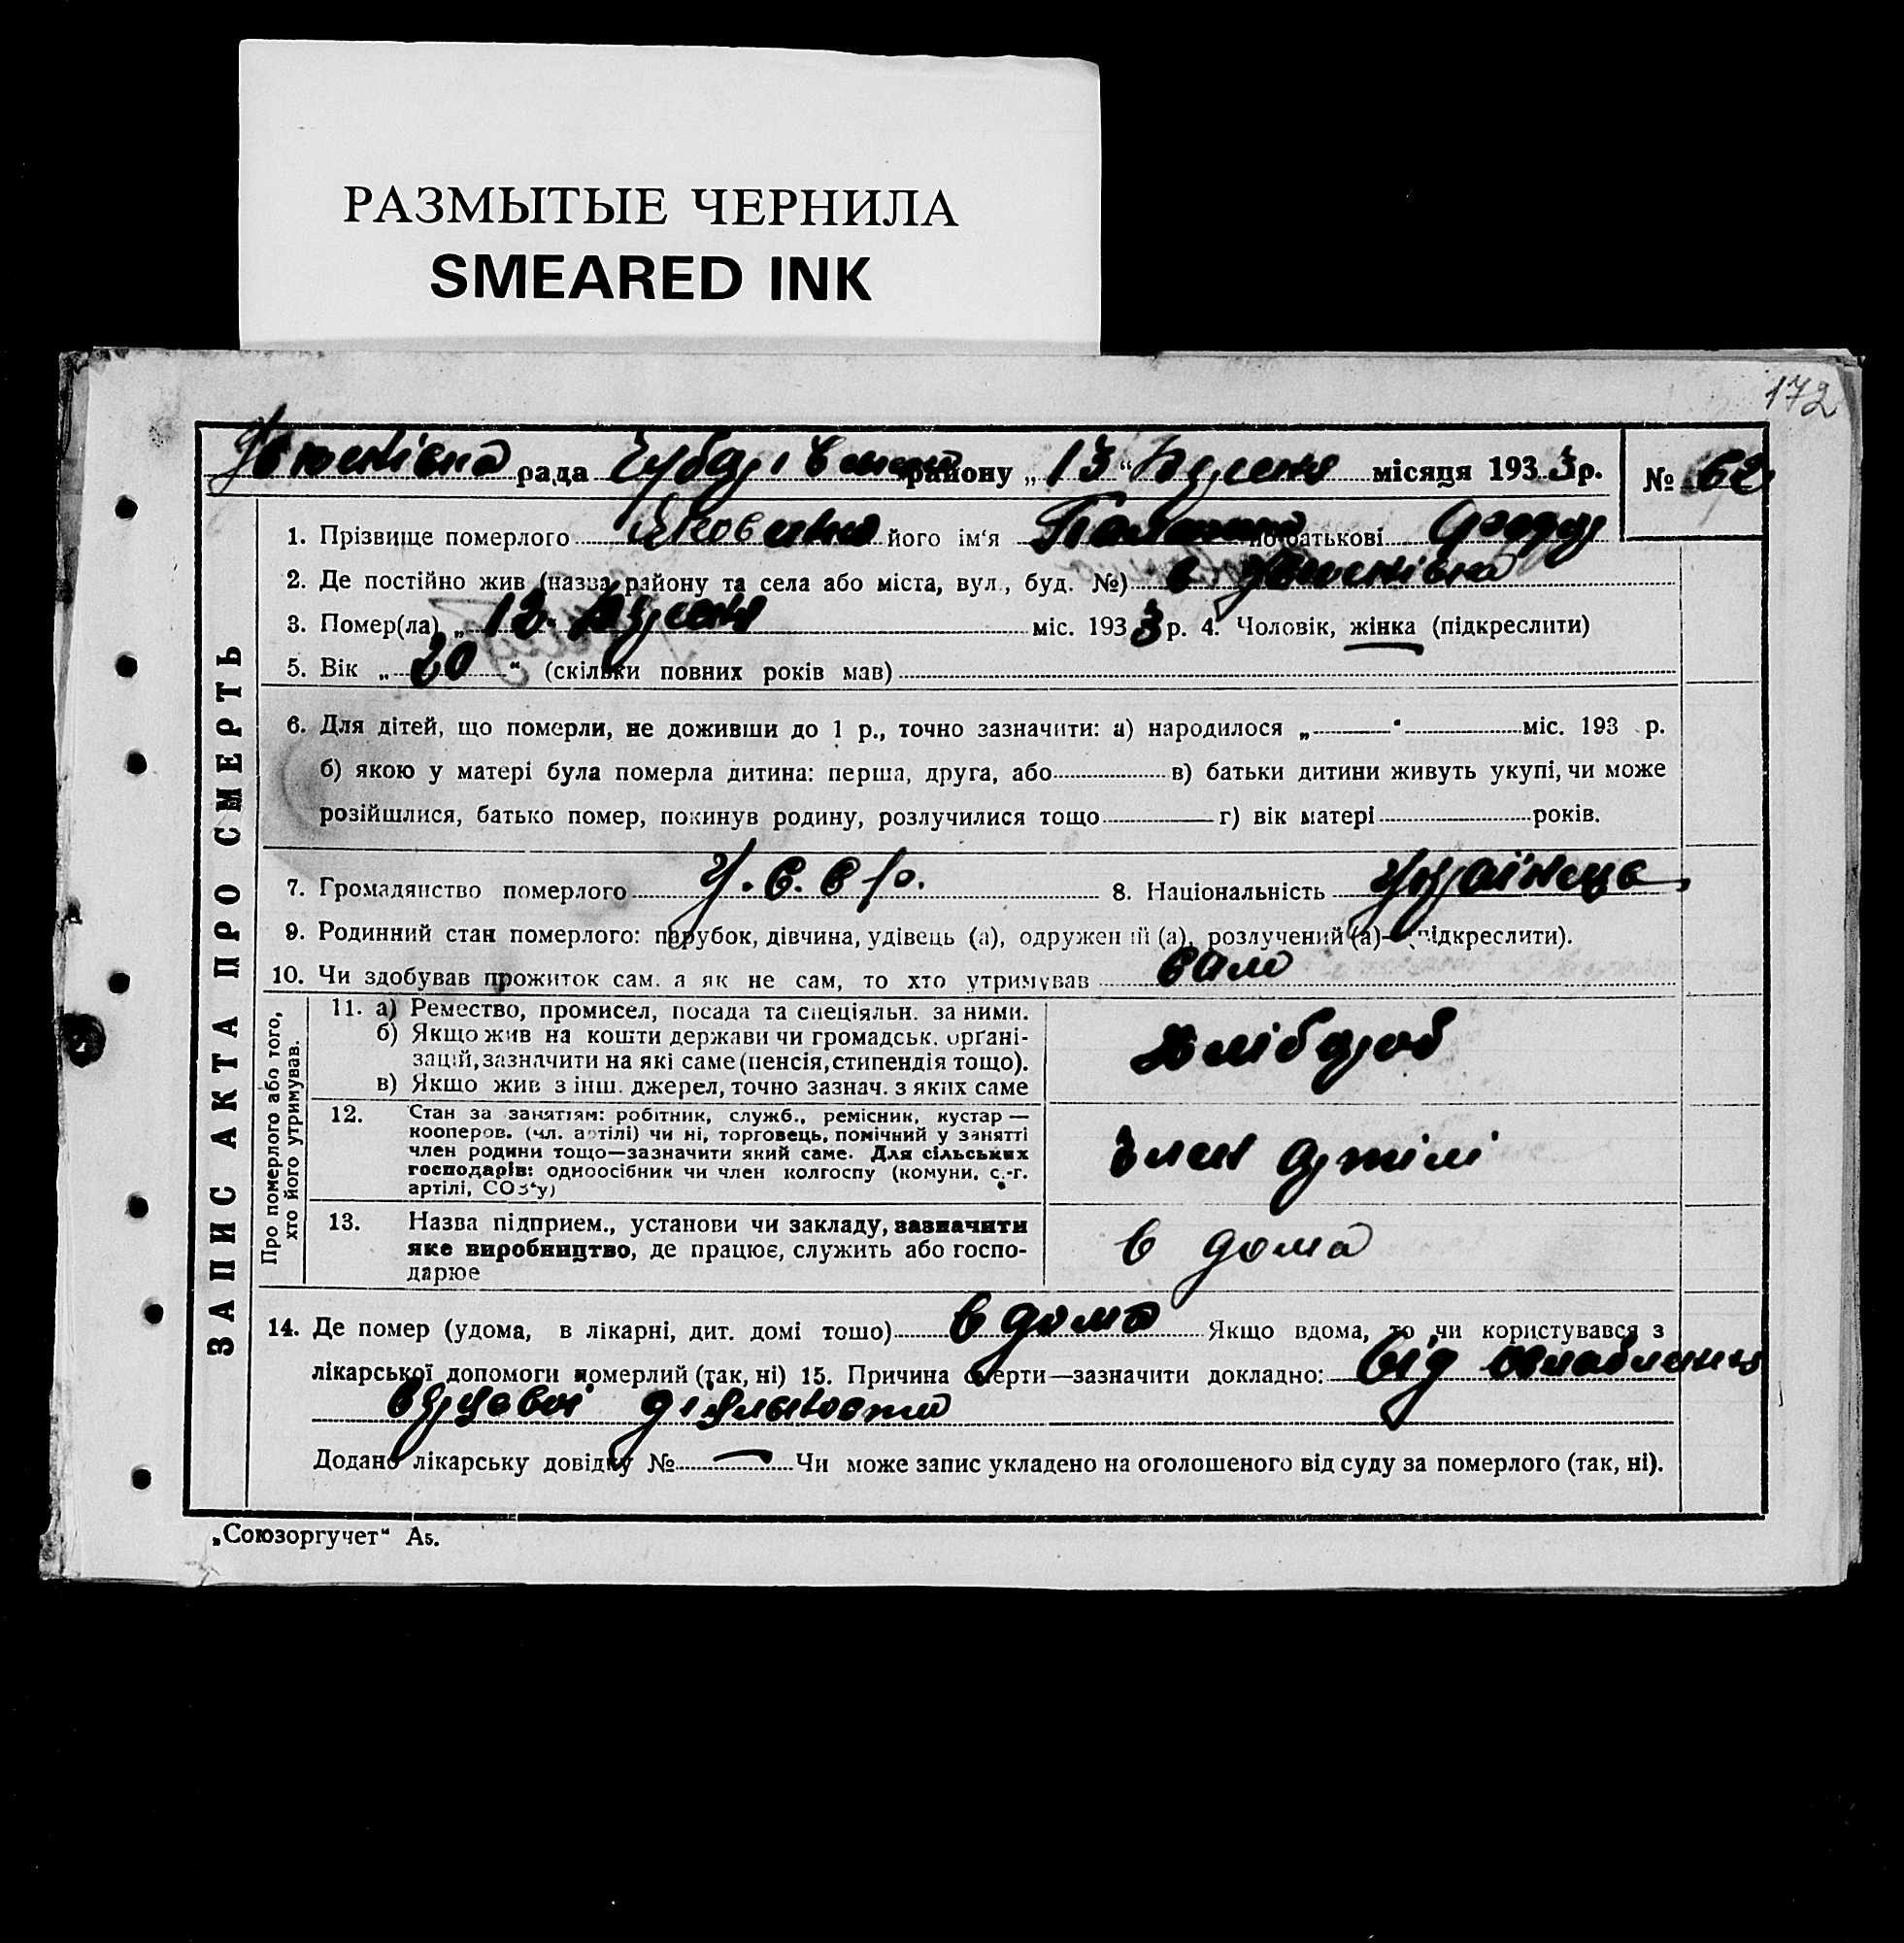 РАЗМЫТЫЕ ЧЕРНИЛА
SMEARED INK
172
рада району „13“ місяця 1933 р. № 62
ЗАПИС АКТА ПРО СМЕРТЬ
1. Прізвище померлого його ім‘я по батькові
2. Де постійно жив (назва району та села або міста, вул., буд. №) в
3. Помер(ла) „ міс. 1933 р. 4. Чоловік, жінка (підкреслити)
5. Вік „ “ (скільки повних років мав)
6. Для дітей, що померли, не доживши до 1 р., точно зазначити: а) народилося „ “ міс. 193 р.
б) якою у матері була померла дитина: перша, друга, або в) батьки дитини живуть укупі, чи може
розійшлися, батько помер, покинув родину, розлучилися тощо г) вік матері років.
7. Громадянство померлого У.С.С.р. 8. Національність Українець
9. Родинний стан померлого: парубок, дівчина, удівець (а), одружений (а), розлучений (а)—(підкреслити).
10. Чи здобував прожиток сам, а як не сам, то хто утримував сам
Про померлого або того,
хто його утримував.
11. а) Ремество, промисел, посада та спеціяльн. за ними.
б) Якщо жив на кошти держави чи громадськ. орґані-
зацій, зазначити на які саме (пенсія, стипендія тощо).
в) Якщо жив з інш. джерел, точно зазнач. з яких саме
Хлібороб
12. Стан за заняттям: робітник, служб., ремісник, кустар —
кооперов. (чл. артілі) чи ні, торговець, помічний у занятті
член родини тощо—зазначити який саме. Для сільських
господарів: одноосібник чи член колгоспу (комуни, с.-г.
артілі, СОЗ‘у)
Член артілі
13. Назва підприєм., установи чи закладу, зазначити
яке виробництво, де працює, служить або госпо-
дарює
в дома
14. Де помер (удома, в лікарні, дит. домі тощо) в дома Якщо вдома, то чи користувався з
лікарської допомоги померлий (так, ні) 15. Причина смерти—зазначити докладно: від
діяльности
Додано лікарську довідку № — Чи може запис укладено на оголошеного від суду за померлого (так, ні).
„Союзоргучет“ А5.